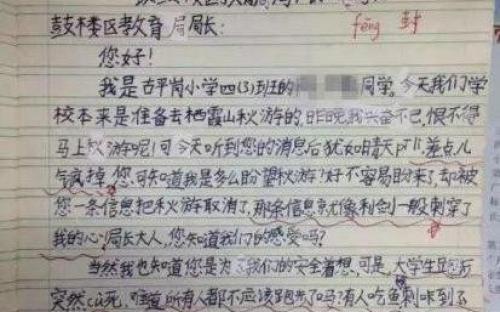 鼓楼区教育局局长:
fēng 封
您好!
我是古平岗小学四(3)班的 同学,今天我们学
校本来是准备去栖霞山秋游的,昨晚我兴奋不已,恨不得
马上秋游呢!可今天听到您的消息后犹如晴天pī lì,差点儿
气疯掉,您可知道我是多么盼望秋游!好不容易盼来了,却被
您一条信息把秋游取消了,那条信息就像利剑一般刺穿了
我的心,局长大人,您知道我们的感爱吗?
当然我也知道您是为了我们的安全着想,可是,大学生跑步
突然cù死,难道所有人都不应该跑步了吗?有人吃鱼刺卡到了